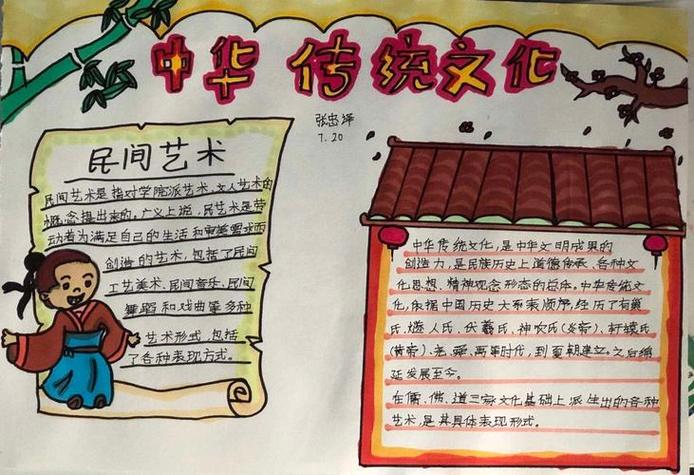 中华传统文化
张忠泽
7.20
民间艺术
民间艺术是指对学院派艺术、文人艺术的
概念提出来的。广义上说,民艺术是劳
动者为满足自己的生活和审美需求而
创造的艺术,包括了民间
工艺美术、民间音乐、民间
舞蹈和戏曲等多种
艺术形式,包括
了各种表现方式。
中华传统文化,是中华文明成果的
创造力,是民族历史上道德传承、各种文
化思想、精神观念形态的总体。中华传统文
化,依据中国历史大系表顺序,经历了有巢
氏、燧人氏、伏羲氏、神农氏(炎帝)、轩辕氏
(黄帝)、尧、舜、禹等时代,到夏朝建立。之后绵
延发展至今。
在儒、佛、道三家文化基础上派生出的各种
艺术,是其具体表现形式。